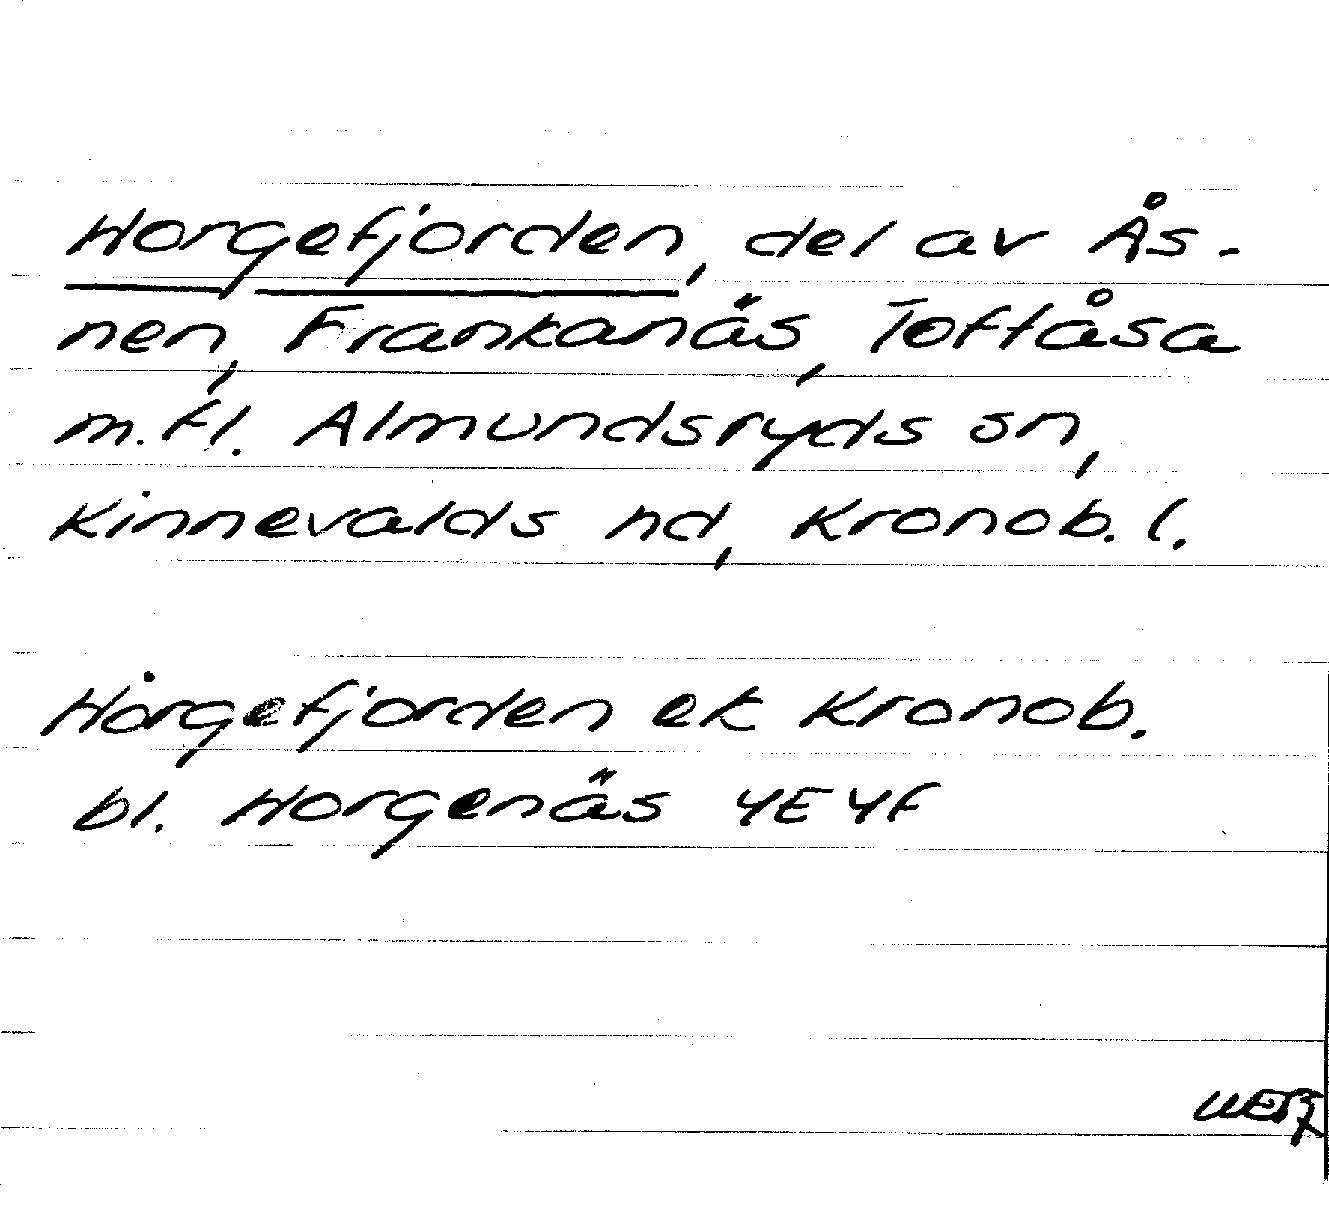 Horgefjorden, del av Ås-
nen, Frankanäs, Toftåsa
m.fl. Almundsryds sn,
Kinnevalds hd, Kronob. l.
Hȯrgefjorden ek Kronob.
bl. Horgenäs 4E4f